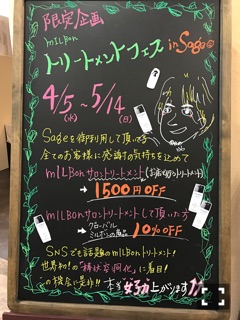 限定企画
milbon
トリートメントフェス in Sage
4/5〜5/14
(水) (日)
Sageを御利用して頂いてる
全てのお客様に感謝の気持を込めて
milbonサロントリートメント(お席でのトリートメント)
→ 1500円OFF
milbonサロントリートメントして頂いた方
グローバル
ミルボンの商品 10%OFF
→
SNSでも話題のmilbonトリートメント!
世界初!の
に着目!
この機会に是非!! 本当
上がります